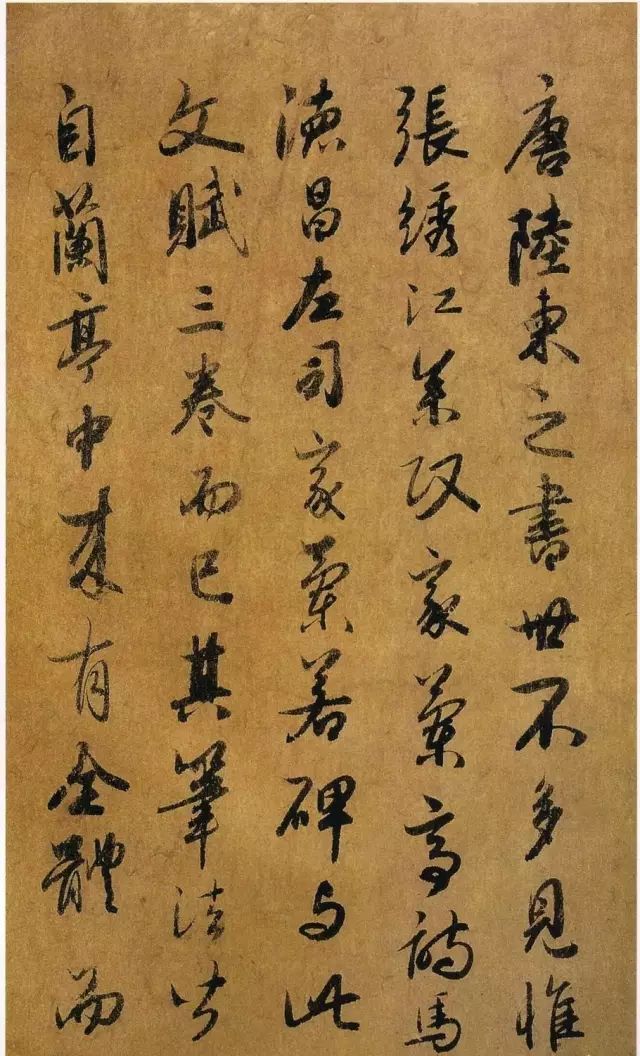 唐陸柬之書世不多見惟
張綉江參政家蘭亭詩馬
德昌左司家蘭若碑与此
文賦三卷而已其筆法皆
自蘭亭中来有全體而